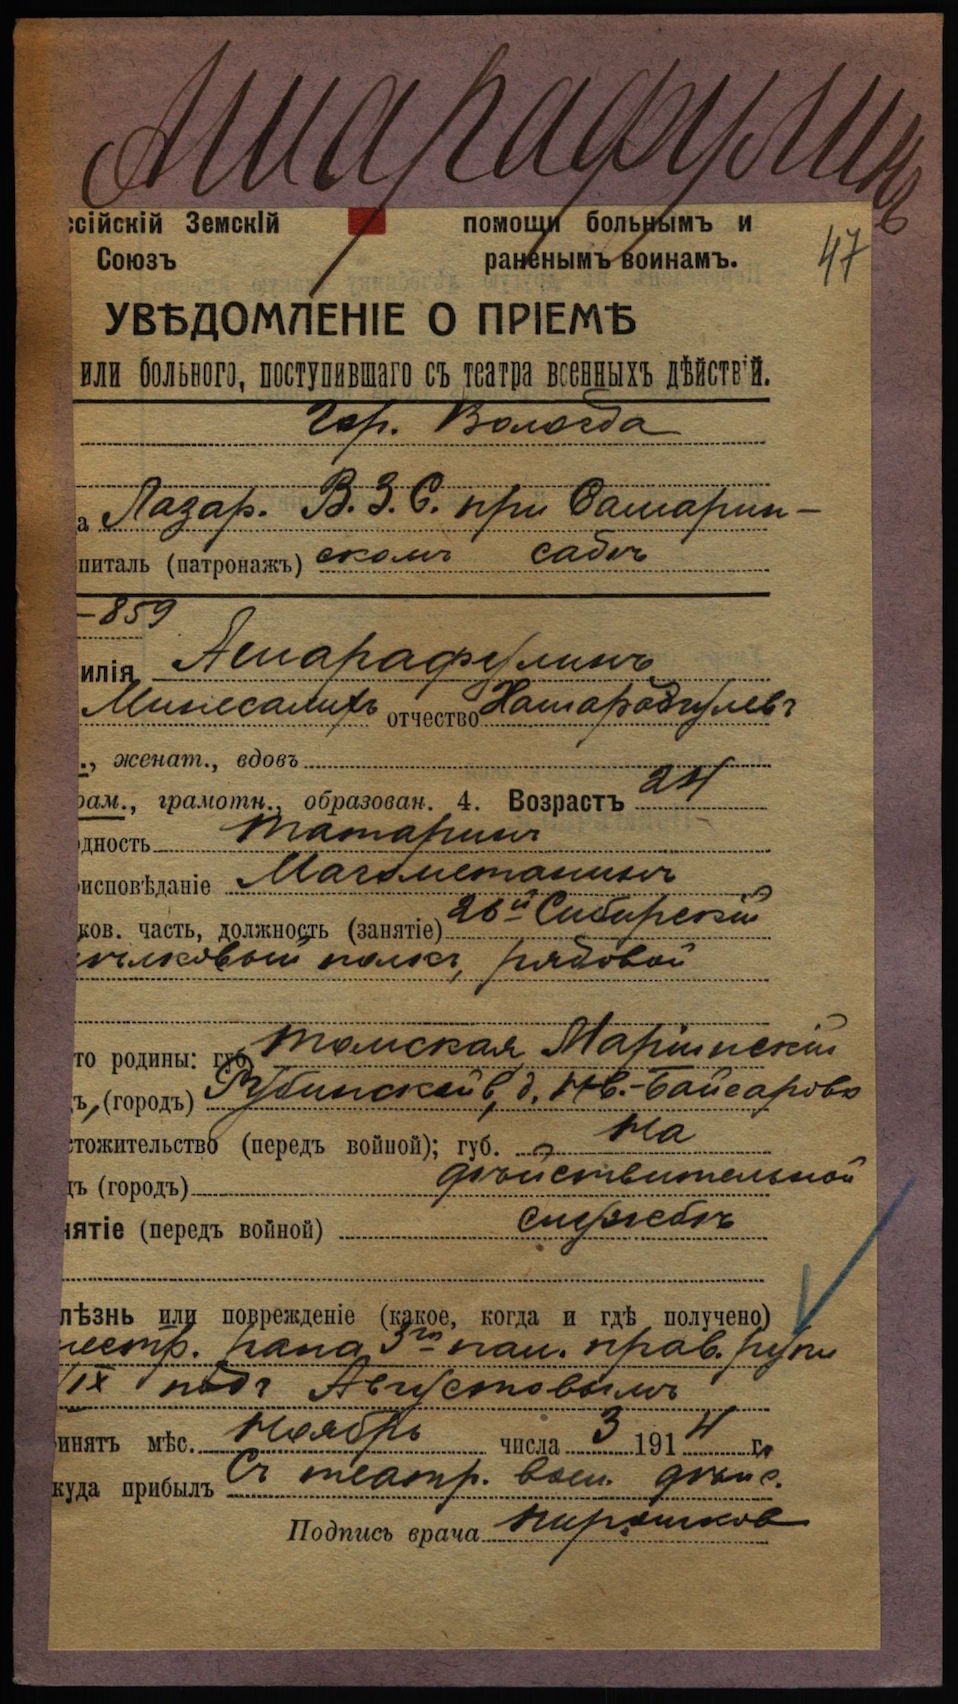 Ашарафулинъ
ссійскій Земскій помощи больнымъ и
Союзъ раненымъ воинамъ.
47
УВѢДОМЛЕНІЕ О ПРІЕМѢ
или больного, поступившаго съ театра военныхъ дѣйствій.
Гор. Вологда
а Лазар. В.З.С. при Самарин-
питаль (патронажъ) скомъ
-859
илія Ашарафулинъ
отчество
., женат., вдовъ
рам., грамотн., образован. 4. Возрастъ 24
дность татаринъ
оисповѣданіе Магометанинъ
ков. часть, должность (занятіе) 26й Сибирскій
ѣлковый полкъ, рядовой
то родины: губ. Томская, Маріинскій
ъ, (городъ) в, д. Нв.-Байсарова
стожительство (передъ войной); губ. На
дъ (городъ) дѣйствительной
нятіе (передъ войной) службѣ
лѣзнь или поврежденіе (какое, когда и гдѣ получено)
рана 3го пал. прав. руки
/IX подъ Августовымъ
ринятъ мѣс. Ноябрь числа 3 1914 г.
куда прибылъ Съ театр. воен. дѣйс.
Подпись врача